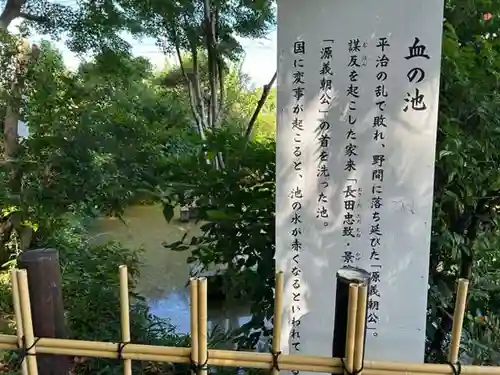 血の池
平治の乱で敗れ、野間に落ち延びた「源義朝公」。
謀反を起こした家来「長田忠致・景
むほん
おさだただむね
かげ
「源義朝公」の首を洗った池。
国に変事が起こると、池の水が赤くなるといわれて